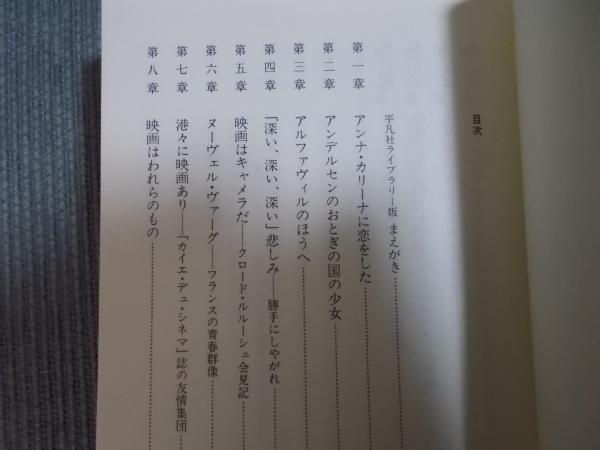 目次
平凡社ライブラリー版 まえがき
第一章 アンナ・カリーナに恋をした
第二章 アンデルセンのおとぎの国の少女
第三章 アルファヴィルのほうへ
第四章 「深い、深い、深い」悲しみ――勝手にしやがれ
第五章 映画はキャメラだ――クロード・ルルーシュ会見記
第六章 ヌーヴェル・ヴァーグ――フランスの青春群像
第七章 港々に映画あり――「カイエ・デュ・シネマ」誌の友情集団
第八章 映画はわれらのもの